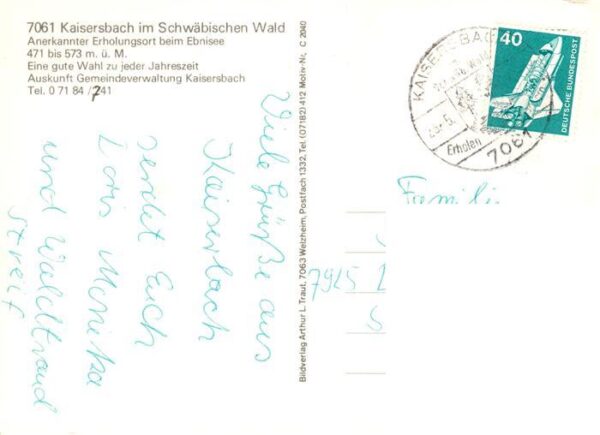 7061 Kaisersbach im Schwäbischen Wald
Anerkannter Erholungsort beim Ebnisee
471 bis 573 m. ü. M.
Eine gute Wahl zu jeder Jahreszeit
Auskunft Gemeindeverwaltung Kaisersbach
Tel. 0 71 84 / 741
Viele Grüße aus
Kaiserbach
sendet Euch
Doris Monika
und Waldtraud
Streif
Bildverlag Arthur L. Traut, 7063 Welzheim, Postfach 1332, Tel. (07182) 412 Motiv-Nr. C 2040
KAISERSBAC
Erholen
7061
40
DEUTSCHE BUNDESPOST
Famili
7925